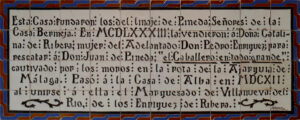 Esta Casa fundaron los del linaje de Pineda, Señores de la
Casa Bermeja. En MCDLXXXIII la vendieron á Doña Catalina
de Ribera, mujer del Adelantado Don Pedro Enriquez, para
rescatar á Don Juan de Pineda, "el Caballero en todo grande",
cautivado por los moros en la rota de la Ajarquia de
Málaga. Pasó á la Casa de Alba en MDCXII
al unirse á ella el Marquesado de Villanueva del
Rio, de los Enriquez de Ribera.